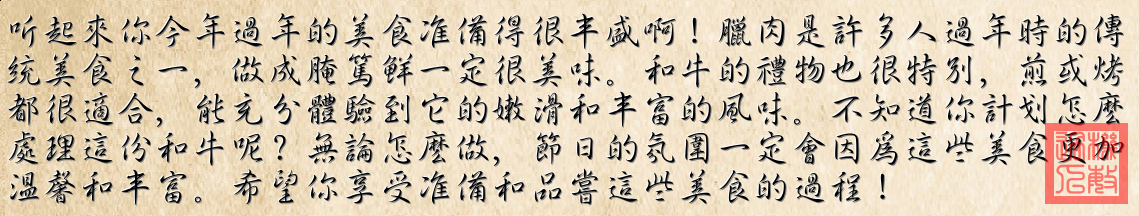 听起來你今年過年的美食准備得很丰盛啊！臘肉是許多人過年時的傳
統美食之一，做成腌篤鮮一定很美味。和牛的禮物也很特別，煎或烤
都很適合，能充分體驗到它的嫩滑和丰富的風味。不知道你計划怎麽
處理這份和牛呢？無論怎麽做，節日的氛圍一定會因爲這些美食更加
溫馨和丰富。希望你享受准備和品嘗這些美食的過程！